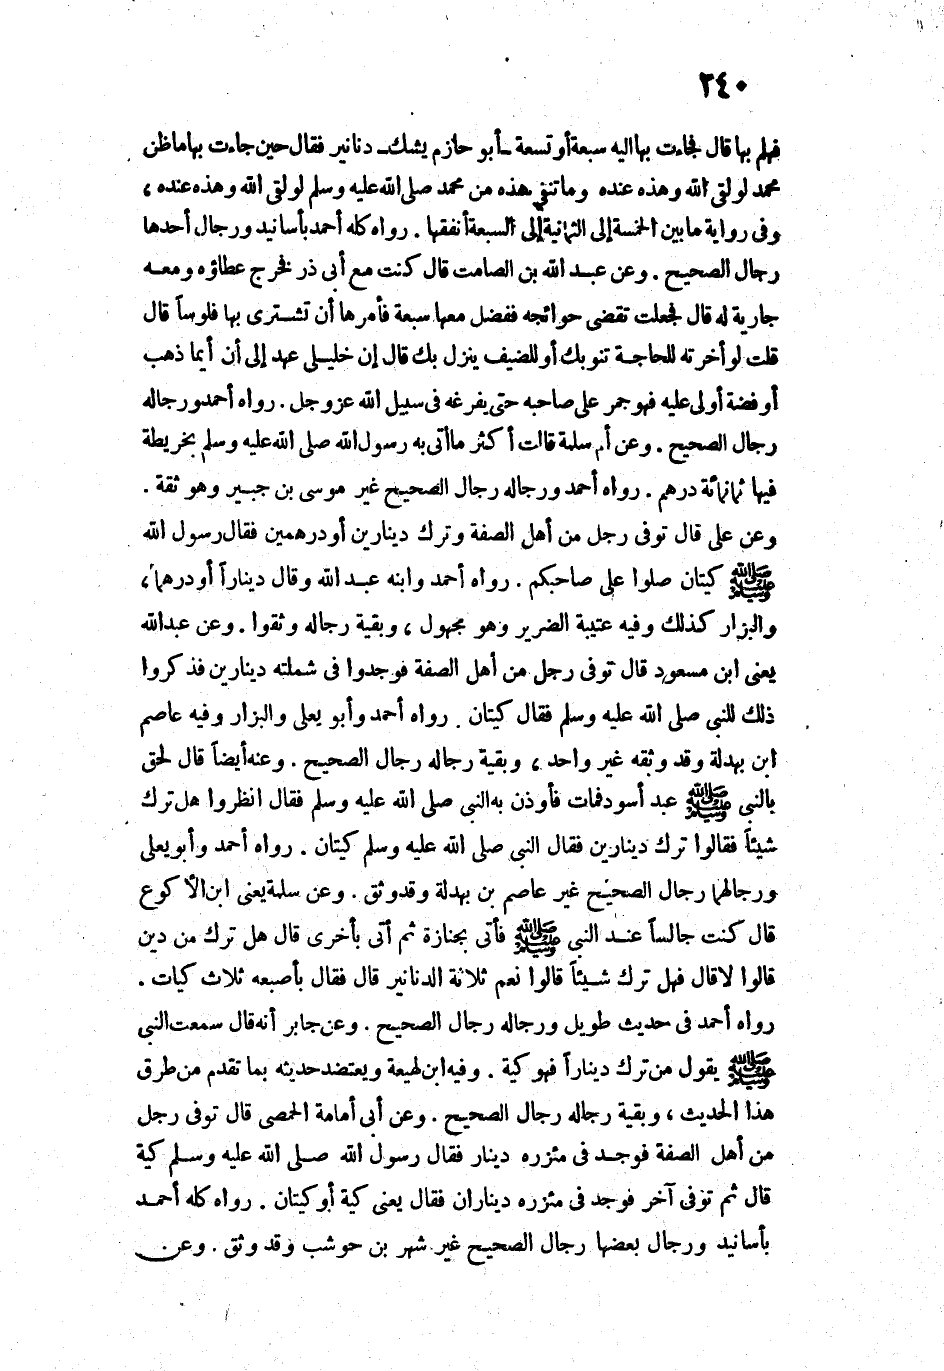 ٢٤٠
فهلم بها قال فجاءت بها اليه سبعة أو تسعة ـ أبو حازم يشك ـ دنانير فقال حين جاءت بها ما ظن
محمد لو لقى الله وهذه عنده وما تنفى هذه من محمد صلى الله عليه وسلم لو لقى الله وهذه عنده ،
وفى رواية ما بين الخمسة إلى الثمانية إلى السبعة أنفقها . رواه كله أحمد بأسانيد ورجال أحدها
رجال الصحيح . وعن عبد الله بن الصامت قال كنت مع أبى ذر فخرج عطاؤه ومعه
جارية له قال فجعلت تقضى حوائجه ففضل معها سبعة فأمرها أن تشترى بها فلوساً قال
قلت لو أخرته للحاجة تنوبك أو للضيف ينزل بك قال إن خليلى عهد إلى أن أيما ذهب
أو فضة أولى عليه فهو جمر على صاحبه حتى يفرغه فى سبيل الله عز وجل . رواه أحمد ورجاله
رجال الصحيح . وعن أم سلمة قالت أكثر ما أتى به رسول الله صلى الله عليه وسلم بخريطة
فيها ثمانمائة درهم . رواه أحمد ورجاله رجال الصحيح غير موسى بن جبير وهو ثقة .
وعن على قال توفى رجل من أهل الصفة وترك دينارين أو درهمين فقال رسول الله
ﷺ كيتان صلوا على صاحبكم . رواه أحمد وابنه عبد الله وقال ديناراً أو درهماً ،
والبزار كذلك وفيه عتيبة الضرير وهو مجهول ، وبقية رجاله وثقوا . وعن عبد الله
يعنى ابن مسعود قال توفى رجل من أهل الصفة فوجدوا فى شملته دينارين فذكروا
ذلك للنبى صلى الله عليه وسلم فقال كيتان . رواه أحمد وأبو يعلى والبزار وفيه عاصم
ابن بهدلة وقد وثقه غير واحد ، وبقية رجاله رجال الصحيح . وعنه أيضاً قال لحق
بالنبى ﷺ عبد أسود فمات فأوذن به النبى صلى الله عليه وسلم فقال انظروا هل ترك
شيئاً فقالوا ترك دينارين فقال النبى صلى الله عليه وسلم كيتان . رواه أحمد وأبو يعلى
ورجالهما رجال الصحيح غير عاصم بن بهدلة وقد وثق . وعن سلمة يعنى ابن الأكوع
قال كنت جالساً عند النبى ﷺ فأتى بجنازة ثم أتى بأخرى قال هل ترك من دين
قالوا لا قال فهل ترك شيئاً قالوا نعم ثلاثة الدنانير قال فقال بأصبعه ثلاث كيات .
رواه أحمد فى حديث طويل ورجاله رجال الصحيح . وعن جابر أنه قال سمعت النبى
ﷺ يقول من ترك ديناراً فهو كية . وفيه ابن لهيعة ويعتضد حديثه بما تقدم من طرق
هذا الحديث ، وبقية رجاله رجال الصحيح . وعن أبى أمامة الحمصى قال توفى رجل
من أهل الصفة فوجد فى مئزره دينار فقال رسول الله صلى الله عليه وسلم كية
قال ثم توفى آخر فوجد فى مئزره ديناران فقال يعنى كية أو كيتان . رواه كله أحمد
بأسانيد ورجال بعضها رجال الصحيح غير شهر بن حوشب وقد وثق . وعن